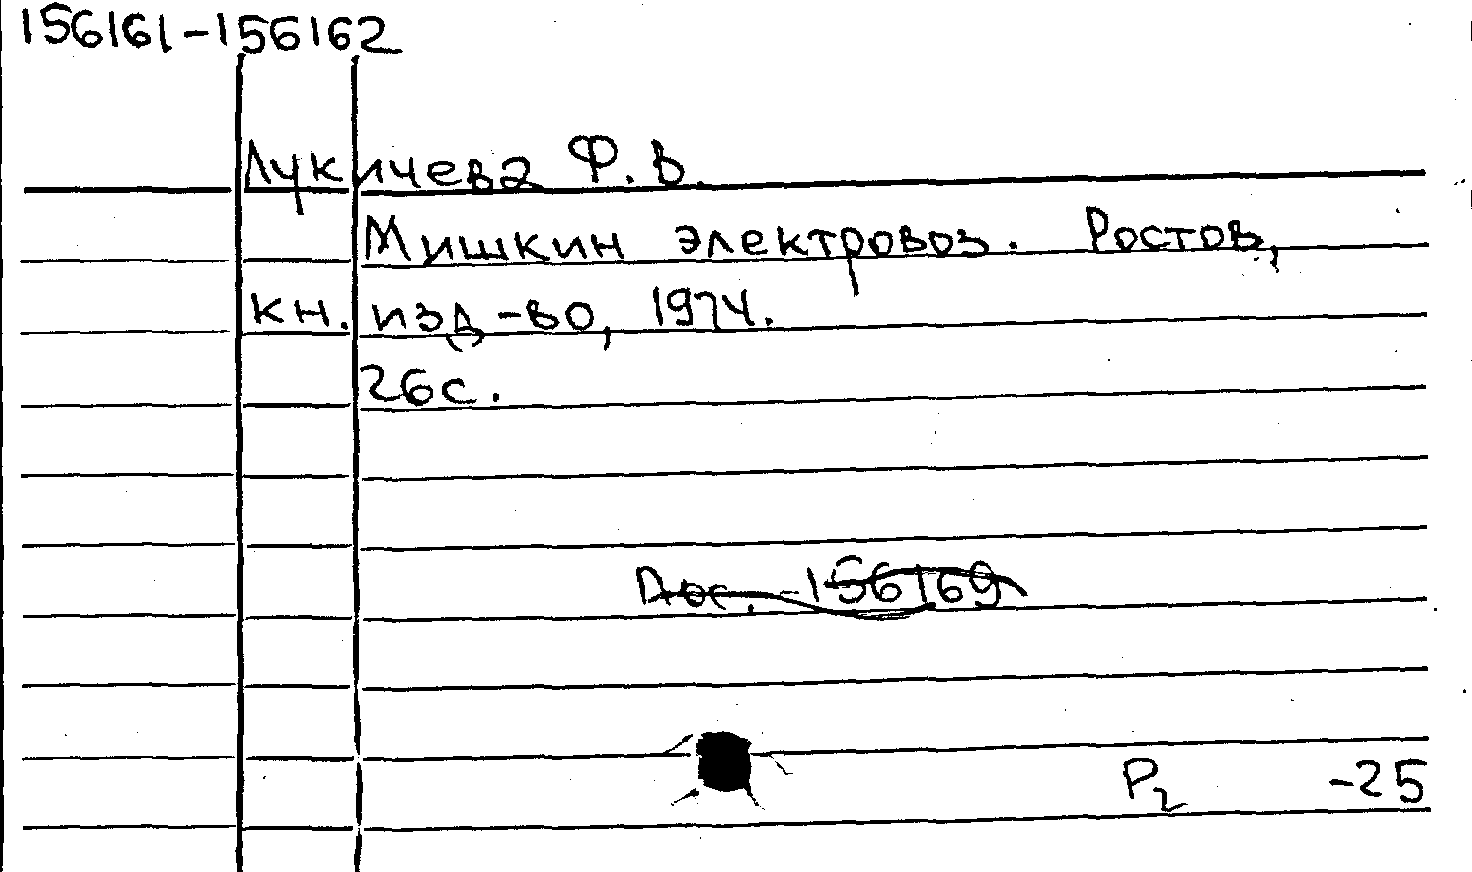 156161-156162
Лукичева Ф.В.
Мишкин электровоз. Ростов,
кн. изд-во, 1974.
26с.
-156169
Р2 -25